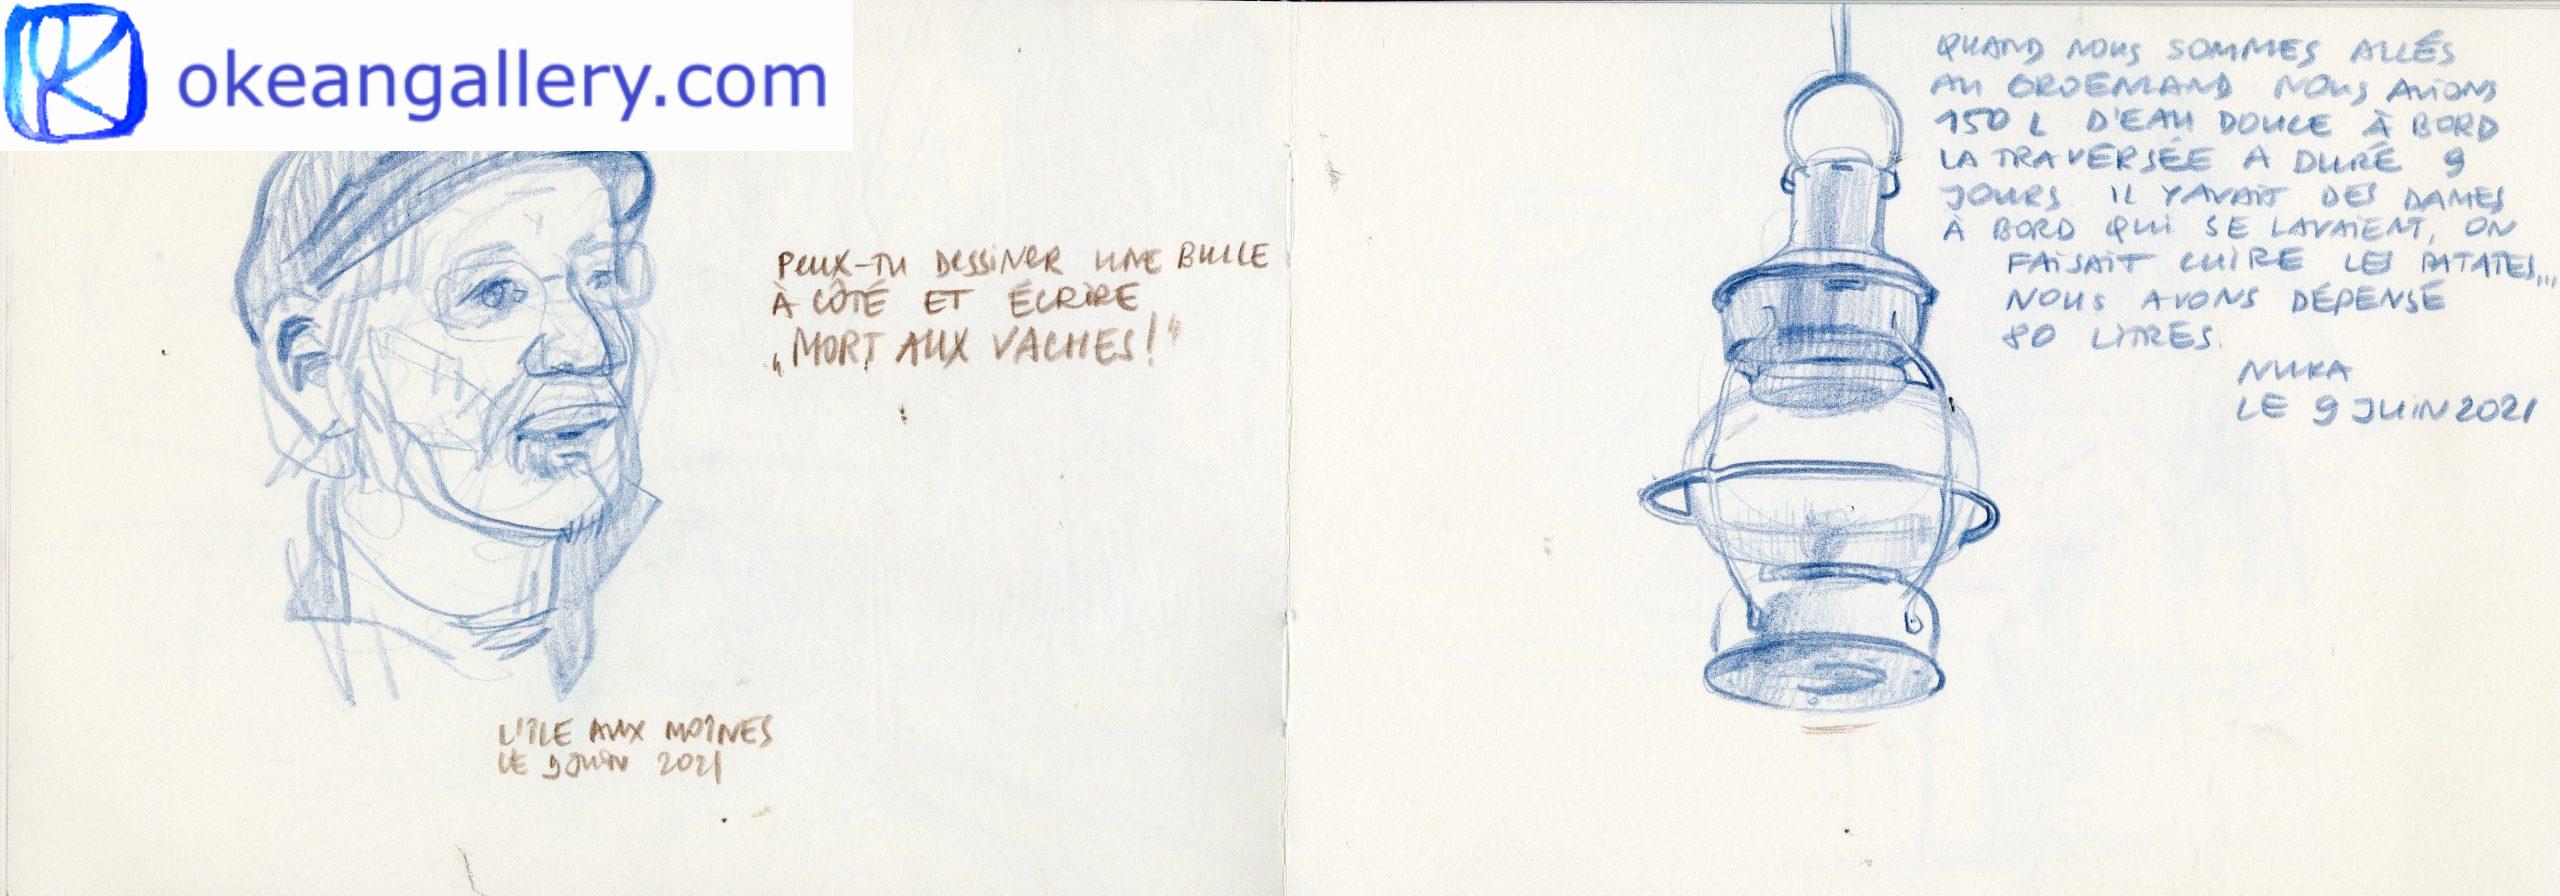 okeangallery.com
PEUX-TU DESSINER UNE BULLE
À CÔTÉ ET ÉCRIRE
„MORT AUX VACHES!"
L'ÎLE AUX MOINES
LE 9 JUIN 2021
QUAND NOUS SOMMES ALLÉS
AU GROENLAND NOUS AVIONS
150 L D'EAU DOUCE À BORD
LA TRAVERSÉE A DURÉ 9
JOURS IL Y AVAIT DES DAMES
À BORD QUI SE LAVAIENT, ON
FAISAIT CUIRE LES PATATES...
NOUS AVONS DÉPENSÉ
80 LITRES.
NUKA
LE 9 JUIN 2021